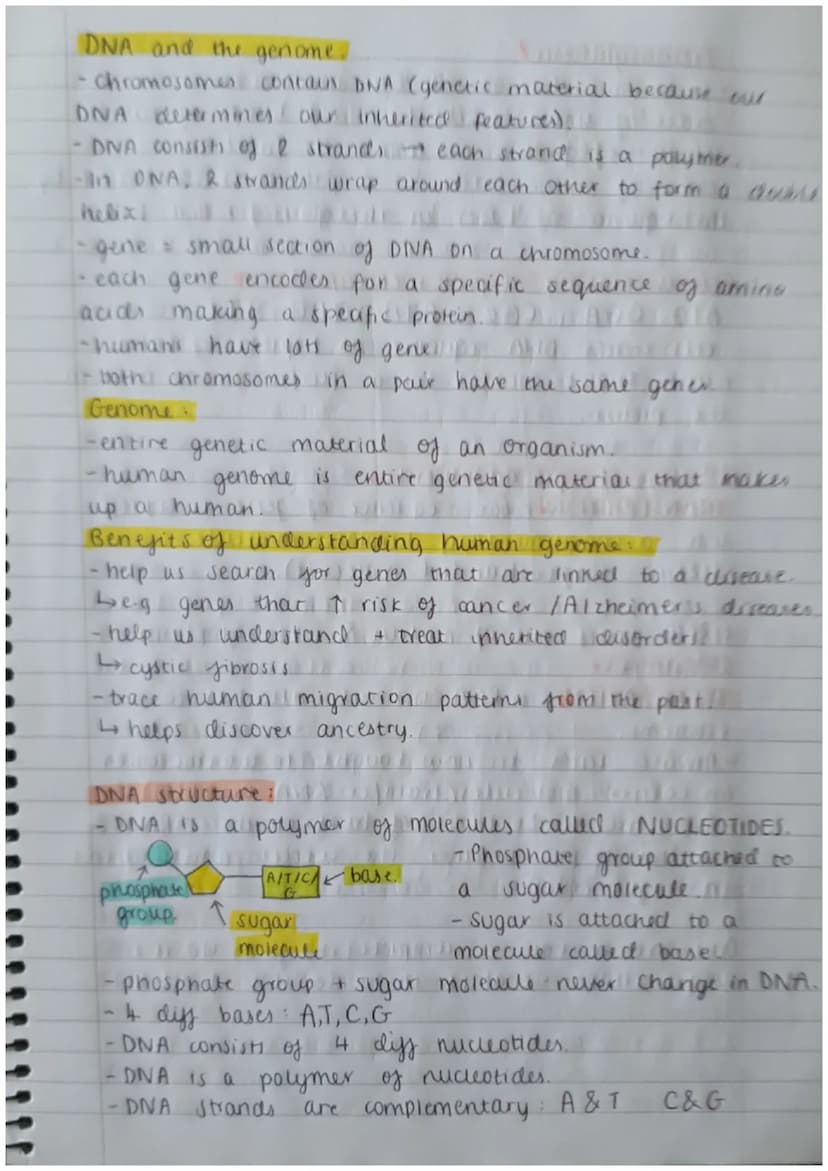 DNA and the genome.
- chromosomes contain DNA (genetic material because our
DNA determines our inherited features).
- DNA consists of 2 strands → each strand is a polymer.
- In DNA, 2 strands wrap around each other to form a double
helix.
- gene = small section of DNA on a chromosome.
- each gene encodes for a specific sequence of amino
acids making a specific protein.
- humans have lots of genes
- both chromosomes in a pair have the same genes
Genome.
- entire genetic material of an organism.
- human genome is entire genetic material that makes
up a human.
Benefits of understanding human genome:
- help us search for genes that are linked to a disease.
↳ e.g genes that ↑ risk of cancer / Alzheimer's diseases
- help us understand + treat inherited disorders
↳ cystic fibrosis
- trace human migration patterns from the past.
↳ helps discover ancestry.
DNA structure:
- DNA is a polymer of molecules called NUCLEOTIDES.
phosphate group.
sugar molecule
A/T/C/G
base.
- Phosphate group attached to
a sugar molecule.
- Sugar is attached to a
molecule called base
- phosphate group + sugar molecule never change in DNA.
- 4 diff bases: A,T,C,G
- DNA consists of 4 diff nucleotides.
- DNA is a polymer of nucleotides.
- DNA strands are complementary: A & T C & G